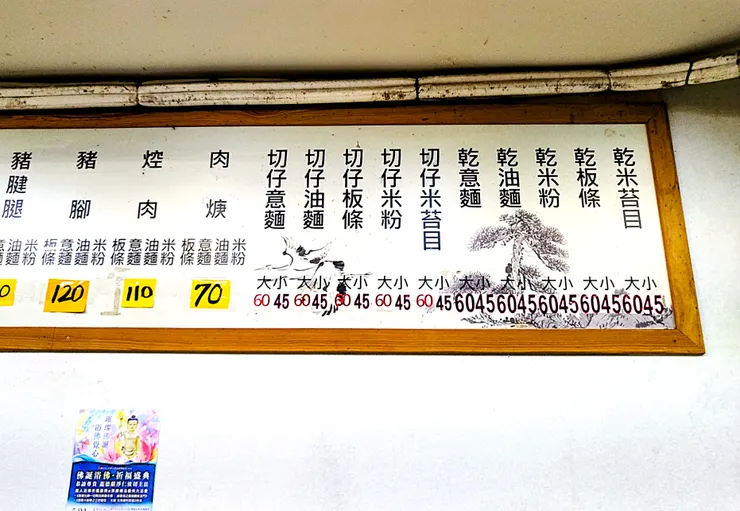 乾米苔目
大小
60 45
乾板條
大小
60 45
乾米粉
大小
60 45
乾油麵
大小
60 45
乾意麵
大小
60 45
切仔米苔目
大小
60 45
切仔米粉
大小
60 45
切仔板條
大小
60 45
切仔油麵
大小
60 45
切仔意麵
大小
60 45
肉羹
米粉
油麵
意麵
板條
70
焢肉
米粉
油麵
意麵
板條
110
豬腳
米粉
油麵
意麵
板條
120
豬腱腿
米粉
油麵
意麵
0
璀璨佛誕
浴佛覺心
佛誕浴佛·祈福盛典